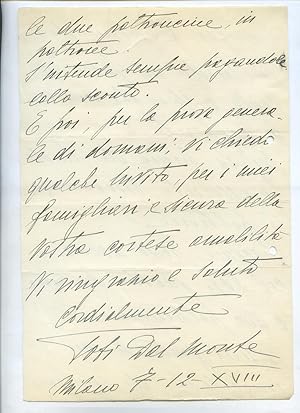 le due poltroncine in
poltrone.
S'intende sempre pagandole
collo sconto.
E poi, per la prova genera-
le di domani, Vi chiedo
qualche invito, per i miei
famigliari e sicura della
vostra cortese amabilità
Vi ringrazio e saluto
cordialmente
Toti Dal Monte
Milano 7-12-XVIII